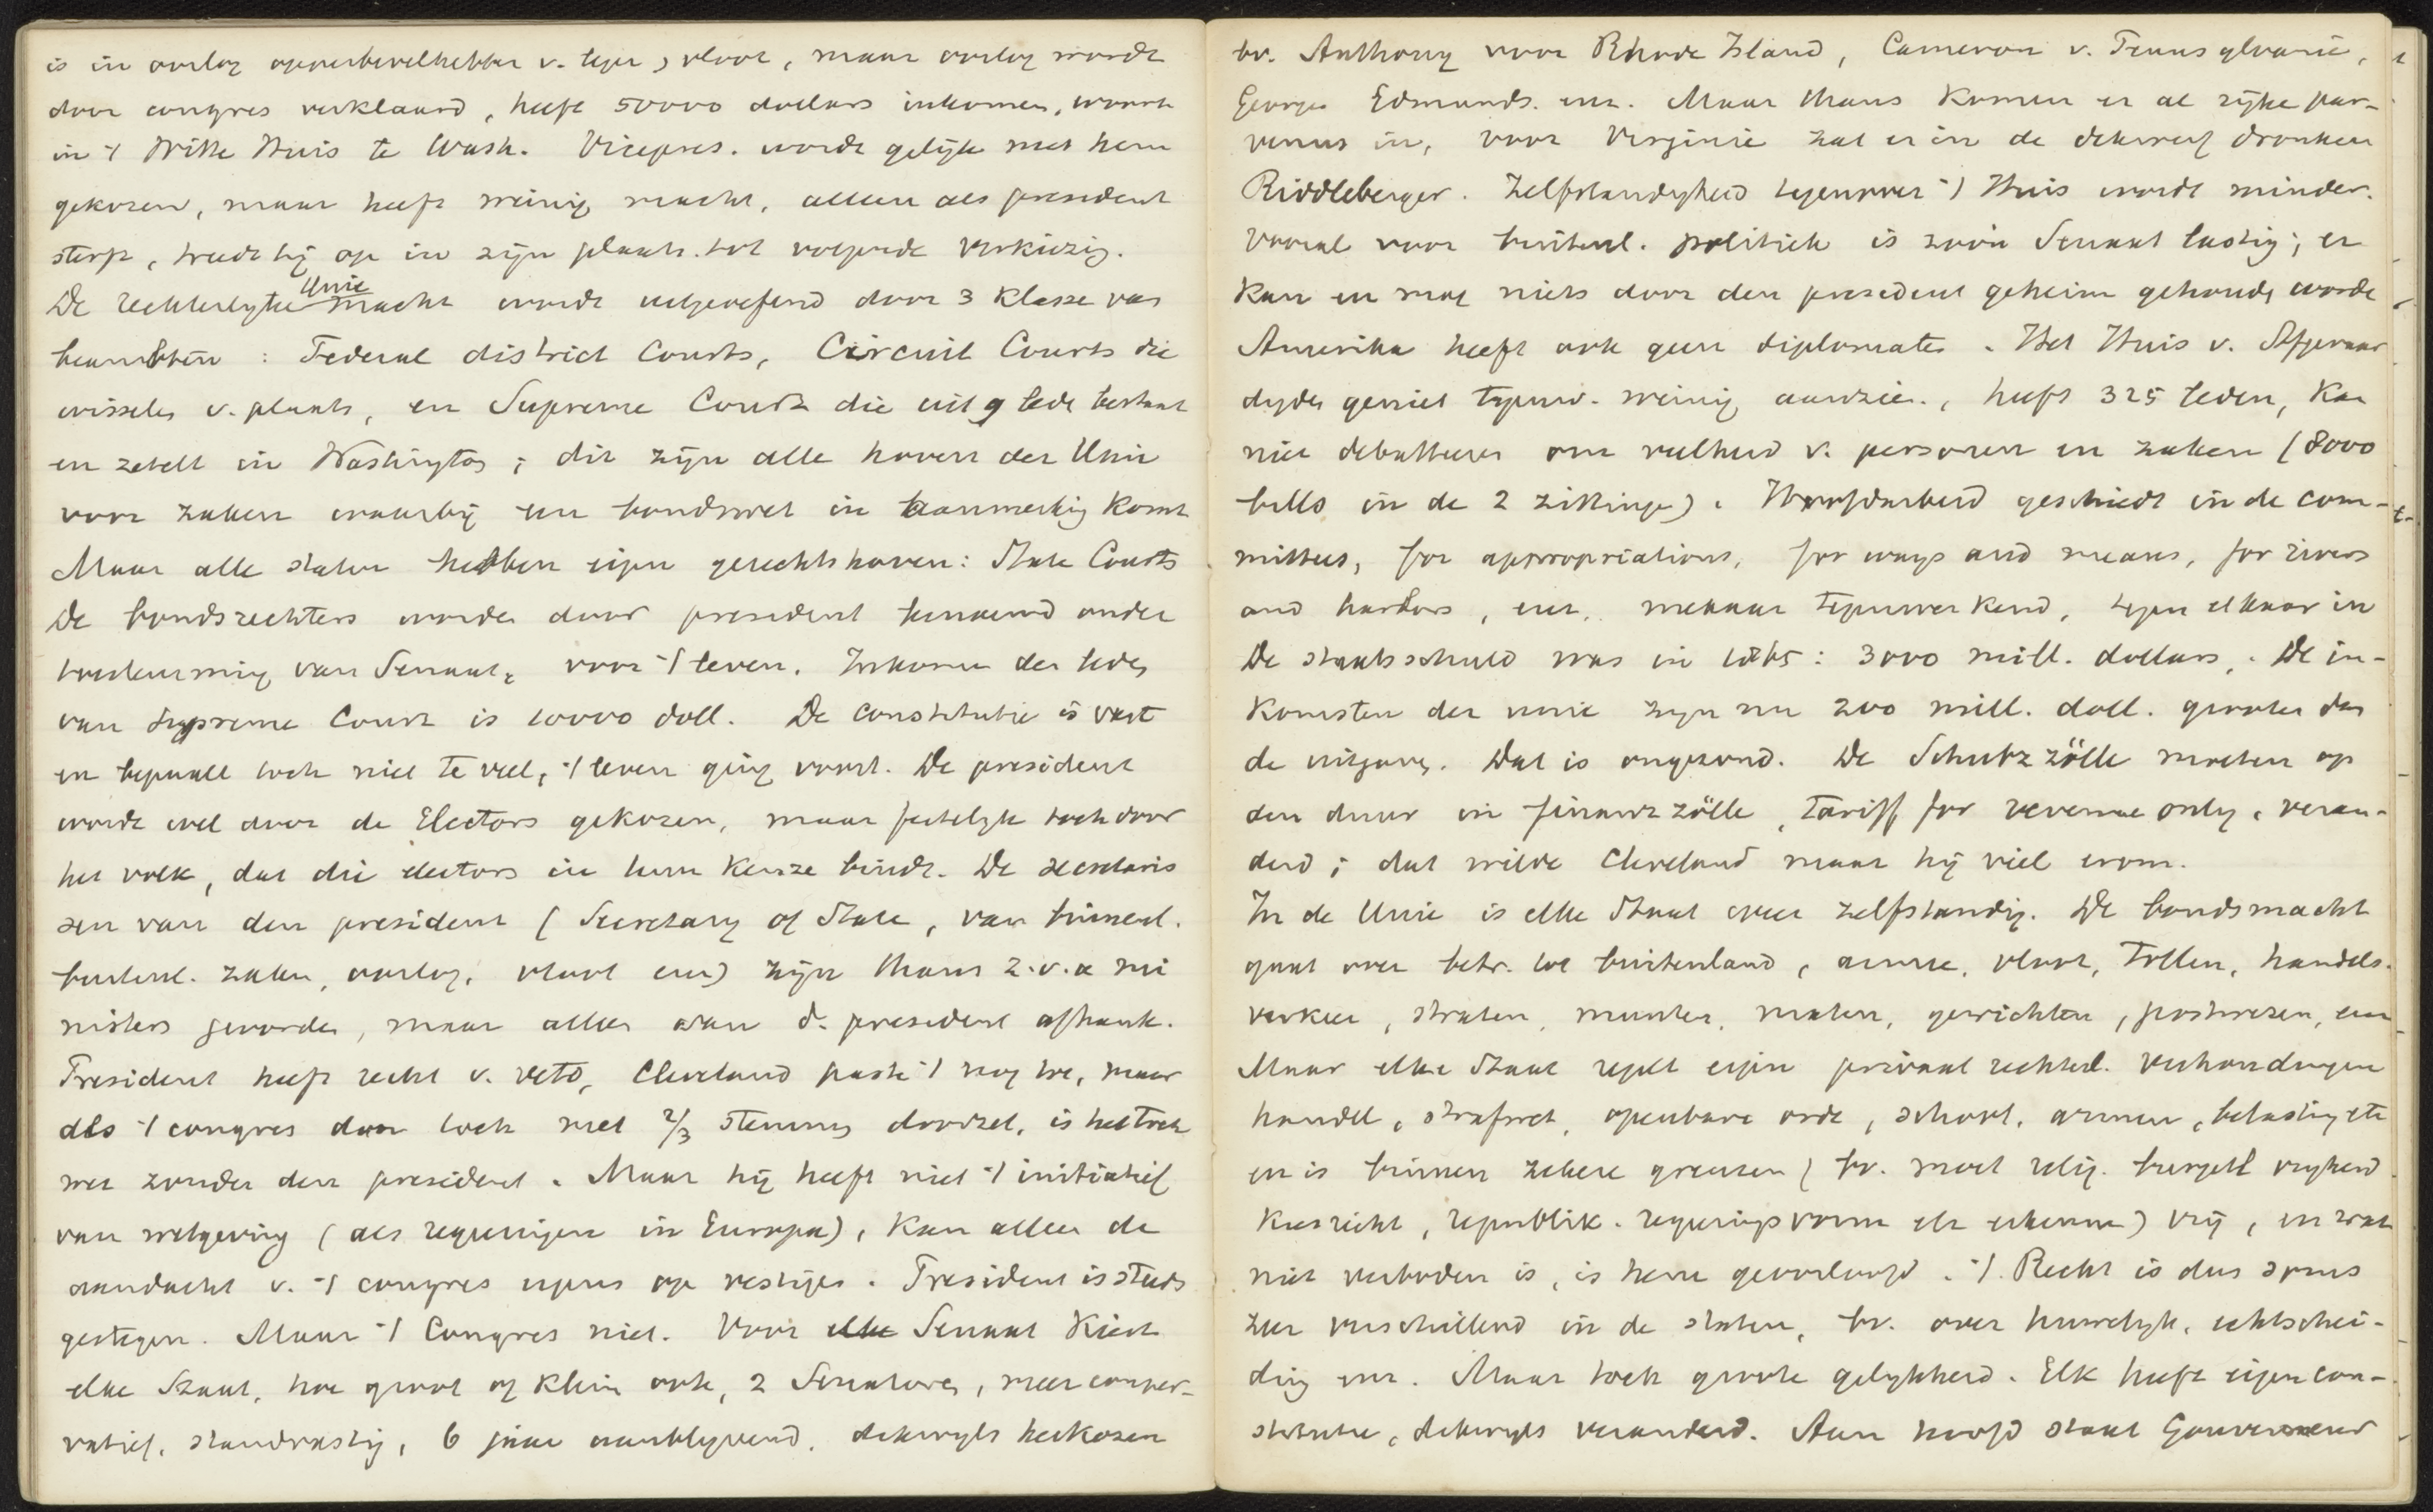 is in oorlog opperbevelhebber v. leger, vloot, maar oorlog wordt
door congres verklaard, heeft 50000 dollars inkomen, woont
in 't Witte Huis te Wash. Vicepres. wordt gelijk met hem
gekozen, maar heeft weinig macht, alleen als president
sterft, treedt hij op in zijn plaats tot volgende verkiezig.
De rechterlijke Unie macht wordt uitgeoefend door 3 klasse van
beambten : Federal district Courts, Circuit Courts die
wisselen v. plaats, en Supreme Court die uit 9 lede bestaat
en zetelt in Washington ; dit zijn alle hoven der Unie
voor zaken waarbij een bondswet in aanmerkig komt
Maar alle staten hebben eigen gerechtshoven: State Courts
De bondsrechters worden door president benoemd onder
toestemming van Senaat, voor 't leven. Inkomen der leden
van Supreme Court is 10000 doll. De constitutie is vast
en bepaalt toch niet te veel, 't leven ging voort. De president
wordt wel door de Electors gekozen, maar feitelijk toch door
het volk, dat die electors in hun keuze bindt. De secretaris
sen van den president (Secretary of State, van binnenl.
buitenl. zaken, oorlog, vloot enz) zijn thans z.v.a mi
nisters geworden, maar alleen van d. president afhank.
President heeft recht v. veto, Cleveland paste 't nog toe, maar
als 't congres dan toch met 2/3 stemmen doorzet, is het toch
wet zonder den president. Maar hij heeft niet 't initiatief
van wetgeving (als regeeringen in Europa), kan alleen de
aandacht v. 't congres ergens op vestigen. President is steeds
gestegen. Maar 't Congres niet. Voor Senaat kiest
elke Staat, hoe groot of klein ook, 2 Senatoren, meer conser-
vatief, standvastig, 6 jaar aanblijvend, dikwijls herkozen
bv. Anthony voor Rhode Island, Cameron v. Pennsylvanië,
George Edmunds enz. Maar thans komen er al rijke par-
venus in, voor Virginie zat er in de dikwerf dronken
Riddleberger. Zelfstandigheid tegenover 't Huis wordt minder.
Vooral voor buitenl. politiek is zoo'n Senaat lastig; er
kan en mag niets door den president geheim gehouden worde
Amerika heeft ook geen diplomaten. Het Huis v. Afgevaar
digden geniet tegenw. weinig aanzien, heeft 325 leden, kan
niet debatteren om veelheid v. personen en zaken (8000
bills in de 2 zittingen). Hoofdarbeid geschiedt in de com-
mittees, for appropriations, for ways and means, for rivers
and harbors, enz. mekaar tegenwerkend, tegen elkaar in
De staatsschuld was in 1865: 3000 mill. dollars. De in-
komsten der unie zijn nu 200 mill. doll. grooter dan
de uitgaven. Dat is ongezond. De Schutzzölle moeten op
den duur in finanzzölle, tariff for revenue only, veran-
derd; dat wilde Cleveland maar hij viel erom.
In de Unie is elke Staat weer zelfstandig. De bondsmacht
gaat over betr. tot buitenland, armee, vloot, tollen, handels-
verkeer, straten, munten, maten, gewichten, postwezen, enz
Maar elke Staat regelt eigen privaat rechtel. verhoudingen
handel, strafwet, openbare orde, school, armen, belasting etc
en is binnen zekere grenzen (bv. moet relig. burgerl vrijheid
kiesrecht, republik. regeeringsvorm etc erkennen) vrij, en wat
niet verboden is, is hem geoorloofd. 't Recht is dus soms
zeer verschillend in de staten, bv. over huwelijk, echtschei-
ding enz. Maar toch groote gelijkheid. Elk heeft eigen con-
stitutie, dikwijls veranderd. Aan hoofd staat Gouverneur